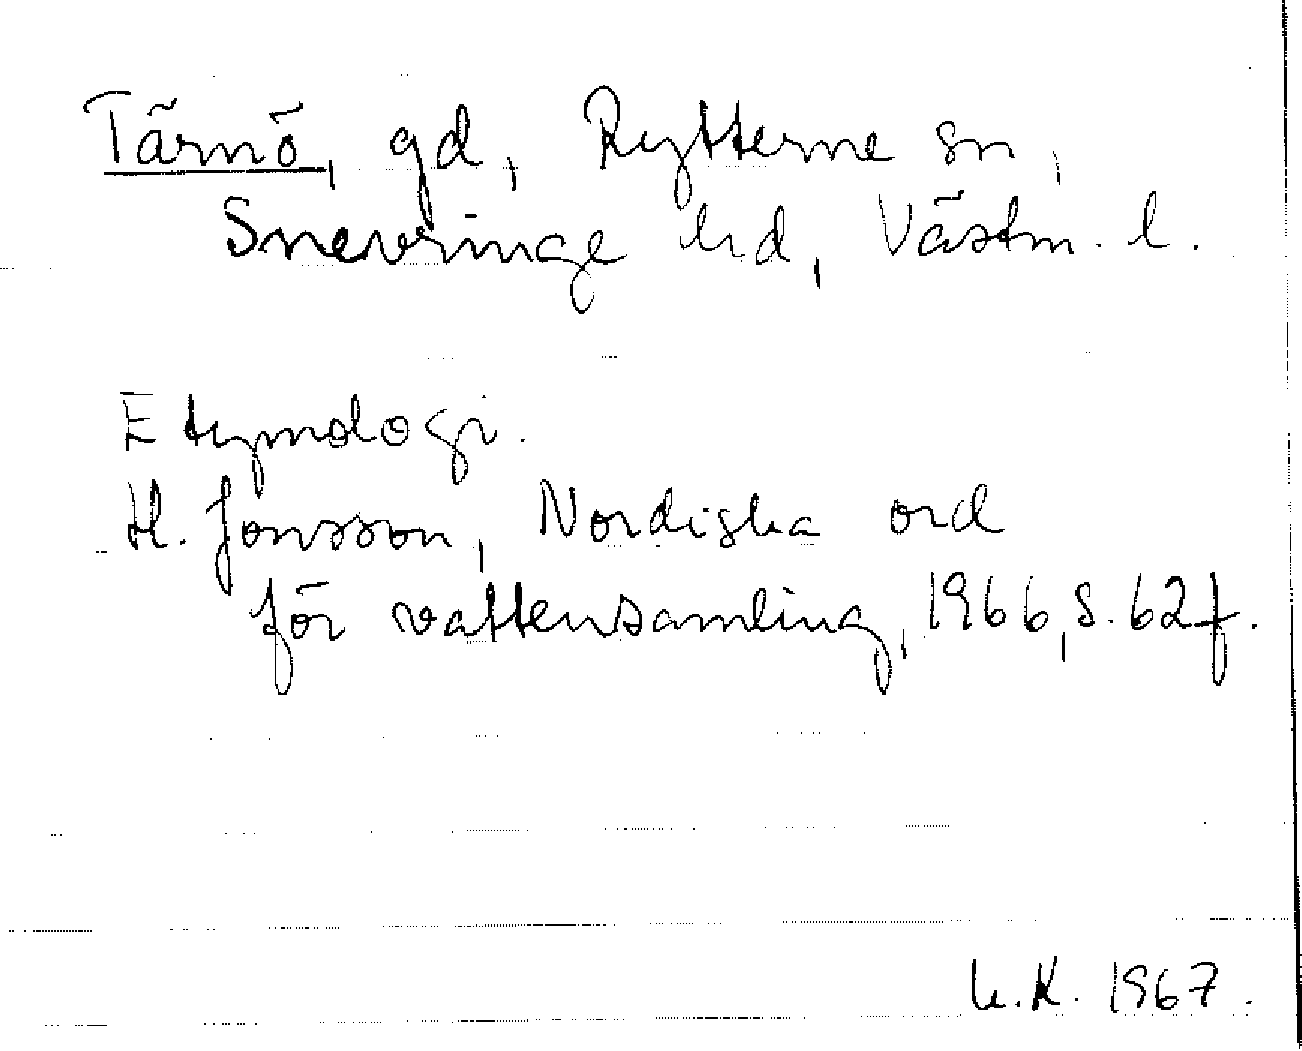 Tärnö, gd, Rytterne sn,
Snevringe hd, Västm. l.
Etymologi.
H. Jonsson, Nordiska ord
för vattensamling, 1966, s. 62 f.
K. 1967.